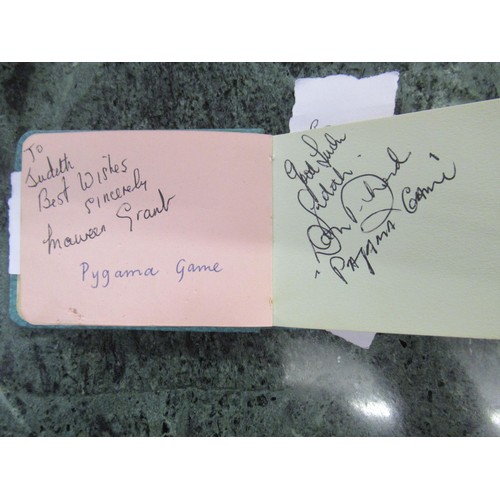 To
Judeth
Best Wishes
Sincerely
Maureen Grant
Pygama Game
Good Luck
Judeth
"Pajama Game"